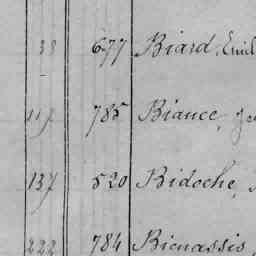 38 677 Biard, Emil
117 785 Biance,
137 520 Bidoche,
222 784 Bienassis,